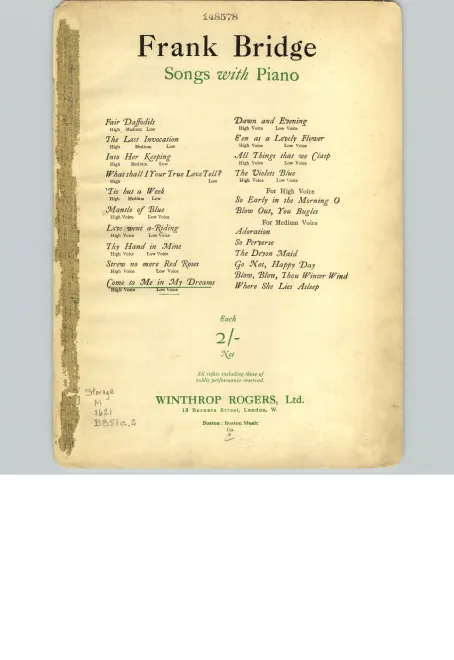 148578
Frank Bridge
Songs with Piano
Fair Daffodils
High Medium Low
The Last Invocation
High Medium Low
Into Her Keeping
High Medium
What shall I Your True Love Tell?
High Low
'Tis but a Week
High Medium Low
Mantle of Blue
High Voice Low Voice
Love went a-Riding
High Voice Low Voice
Thy Hand in Mine
High Voice Low Voice
Strew no more Red Roses
High Voice Low Voice
Come to Me in My Dreams
High Voice Low Voice
Dawn and Evening
High Voice Low Voice
E'en as a Lovely Flower
High Voice Low Voice
All Things that we Clasp
High Voice Low Voice
The Violets Blue
High Voice Low Voice
For High Voice
So Early in the Morning O
Blow Out, You Bugles
For Medium Voice
Adoration
So Perverse
The Devon Maid
Go Not, Happy Day
Blow, Blow, Thou Winter Wind
Where She Lies Asleep
Each
2/-
Net
All rights including those of
public performance reserved.
WINTHROP ROGERS, Ltd.
18 Berners Street, London, W.
Boston : Boston Music
Co.
Storage
M
1621
B851c.2